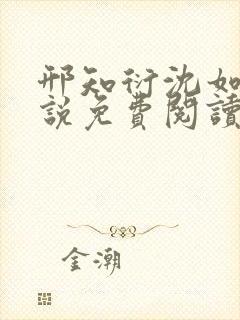 邢知衍沈如
說免費閱讀
金潮